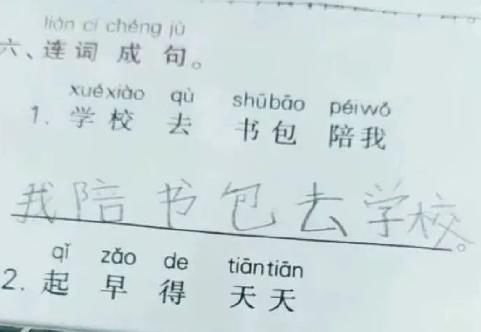 lián cí chéng jù
六、连词成句。
xuéxiào qù shūbāo péiwǒ
1. 学校 去 书包 陪我
我陪书包去学校。
qǐ zǎo de tiāntiān
2. 起 早 得 天天